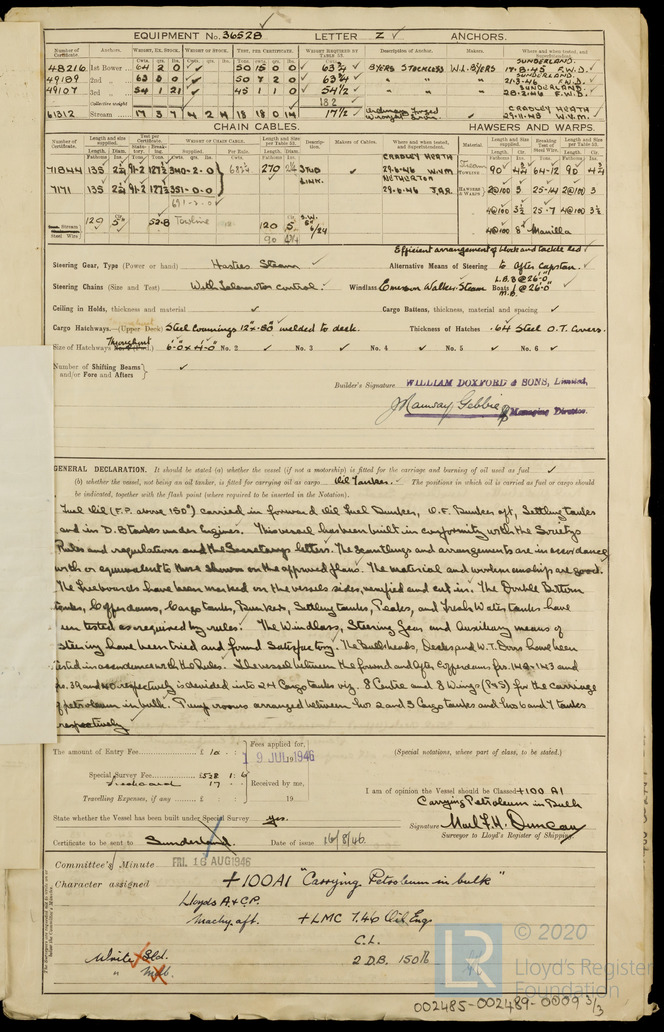 EQUIPMENT No. 36528 LETTER Z ANCHORS.
Number of Certificate. Anchors. WEIGHT, EX. STOCK. WEIGHT OF STOCK. TEST, PER CERTIFICATE. WEIGHT REQUIRED BY TABLE 53. Description of Anchor. Makers. Where and when tested, and Superintendent.
48216 1st Bower 64 2 0 50 15 0 0 63¾ BYERS STOCKLESS W.L. BYERS SUNDERLAND. 17-8-45 F.W.D.
49189 2nd 63 3 0 50 7 2 0 63¾ " " " SUNDERLAND. 21-3-46 F.W.D.
49107 3rd 54 1 21 45 1 1 0 54½ " " " SUNDERLAND 28-2-46 F.W.D.
Collective weight 182
61312 Stream 17 3 7 4 2 14 18 18 0 14 17½ Ordinary Forged Wrought Iron CRADLEY HEATH 29-11-43 W.V.M.
CHAIN CABLES. HAWSERS AND WARPS.
Number of Certificate. Length and size supplied. Test per Certificate. WEIGHT OF CHAIN CABLE. Length and size per Table 53. Description. Makers of Cables. Where and when tested, and Superintendent. Material. Length and size supplied. Breaking Test of Steel Wire. Length and size per Table 53.
71844 135 2¼ 91-2 127½ 340-2-0 683¼ 270 2¼ STUD LINK. CRADLEY HEATH 29-6-46 W.V.M
7171 135 2¼ 91-2 127½ 351-0-0 NETHERTON 29-6-46 J.A.R.
691-2-0
Stream Steel Wire 120 5" 52-8 Towline 120 5 S.W. 6/24
90
TOWLINE 90 64-12 90
HAWSERS & WARPS 2@100 3 25-14 2@100 3
4@100 3½ 25-7 4@100 3½
4@100 8" Manilla
Efficient arrangement of block and tackle led
Steering Gear, Type (Power or hand) Hasties Steam Alternative Means of Steering to After Capstan.
Steering Chains (Size and Test) With Telemotor control. Windlass Emerson Walker Steam Boats L.B. 3 @ 26'-0" M.B. 1 @ 26'-0"
Ceiling in Holds, thickness and material Cargo Battens, thickness, material and spacing
Cargo Hatchways.—(Upper Deck) Steel Coamings 12" x .80" welded to deck. Thickness of Hatches .64 Steel O.T. Covers.
Size of Hatchways Throughout 6'-0" x 4'-0" No. 2 No. 3 No. 4 No. 5 No. 6
Number of Shifting Beams and/or Fore and Afters
Builder's Signature WILLIAM DOXFORD & SONS, Limited,
J Ramsay Gebbie Managing Director.
GENERAL DECLARATION. It should be stated (a) whether the vessel (if not a motorship) is fitted for the carriage and burning of oil used as fuel
(b) whether the vessel, not being an oil tanker, is fitted for carrying oil as cargo Oil Tanker. The positions in which oil is carried as fuel or cargo should
be indicated, together with the flash point (where required to be inserted in the Notation).
Fuel Oil (F.P. above 150°) carried in forward Oil Fuel Bunker, O.F. Bunker aft, Settling tanks
and in D.B tanks under Engines. This vessel has been built in conformity with the Society's
Rules and regulations and the Secretary's letters. The scantlings and arrangements are in accordance
with or equivalent to those shown on the approved plans. The material and workmanship are good.
The freeboards have been marked on the vessel's sides, verified and cut in. The Double Bottom
tanks, Cofferdams, Cargo tanks, Bunkers, Settling tanks, Peaks, and Fresh Water tanks have
been tested as required by rules. The Windlass, Steering Gear and Auxiliary means of
steering have been tried and found Satisfactory. The Bulkheads, Decks and W.T. Doors have been
tested in accordance with the Rules. The vessel between the forward and after Cofferdams frs. 142-143 and
frs. 39 and 40 respectively is divided into 24 Cargo tanks viz. 8 Centre and 8 Wings (P&S) for the carriage
of petroleum in bulk. Pump rooms arranged between Nos 2 and 3 Cargo tanks and Nos 6 and 7 tanks
respectively
The amount of Entry Fee £ 10 Fees applied for, 19 JUL 1946 (Special notations, where part of class, to be stated.)
Special Survey Fee £538 1 6
Freeboard 17 Received by me,
Travelling Expenses, if any £ 19
I am of opinion the Vessel should be Classed +100 A1
Carrying Petroleum in Bulk
State whether the Vessel has been built under Special Survey Yes.
Signature
Surveyor to Lloyd's Register of Shipping.
Certificate to be sent to Sunderland. Date of issue 16/8/46.
Committee's Minute FRI. 16 AUG 1946
Character assigned +100A1 "Carrying Petroleum in bulk"
Lloyds A & C.P.
Machy. aft. + LMC 7.46 Oil Engs
C.L.
2 D.B. 150 lb
Write Sld.
" Mdb.
© 2020
LR Lloyd's Register Foundation
002485-002489-0009 3/3